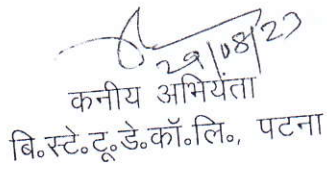 29/08/23
कनीय अभियंता
बि॰स्टे॰टू॰डे॰कॉ॰लि॰, पटना